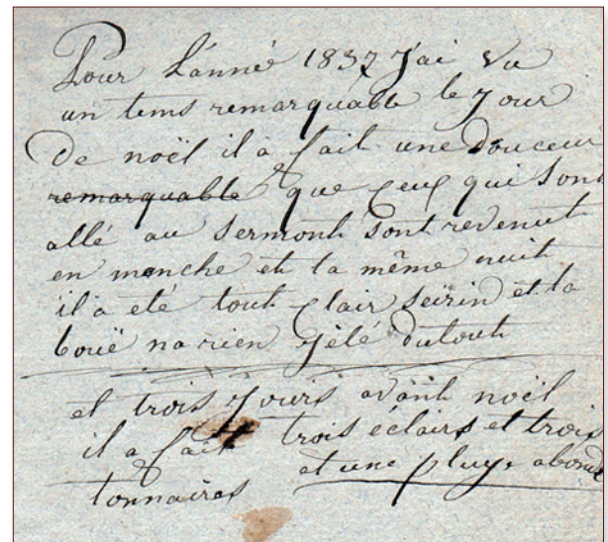 Pour L'anné 1837 J'ai Vu
un tems remarquable le Jour
De noël il à fait une Douceur
remarquable que ceux qui Sont
allé au Sermont Sont revenut
en menche et la même nuit
il a eté tout clair Seirin et la
bouë na rien gélé dutout
et trois Jours avant noël
il a fait trois éclairs et trois
tonnaires et une pluye abond